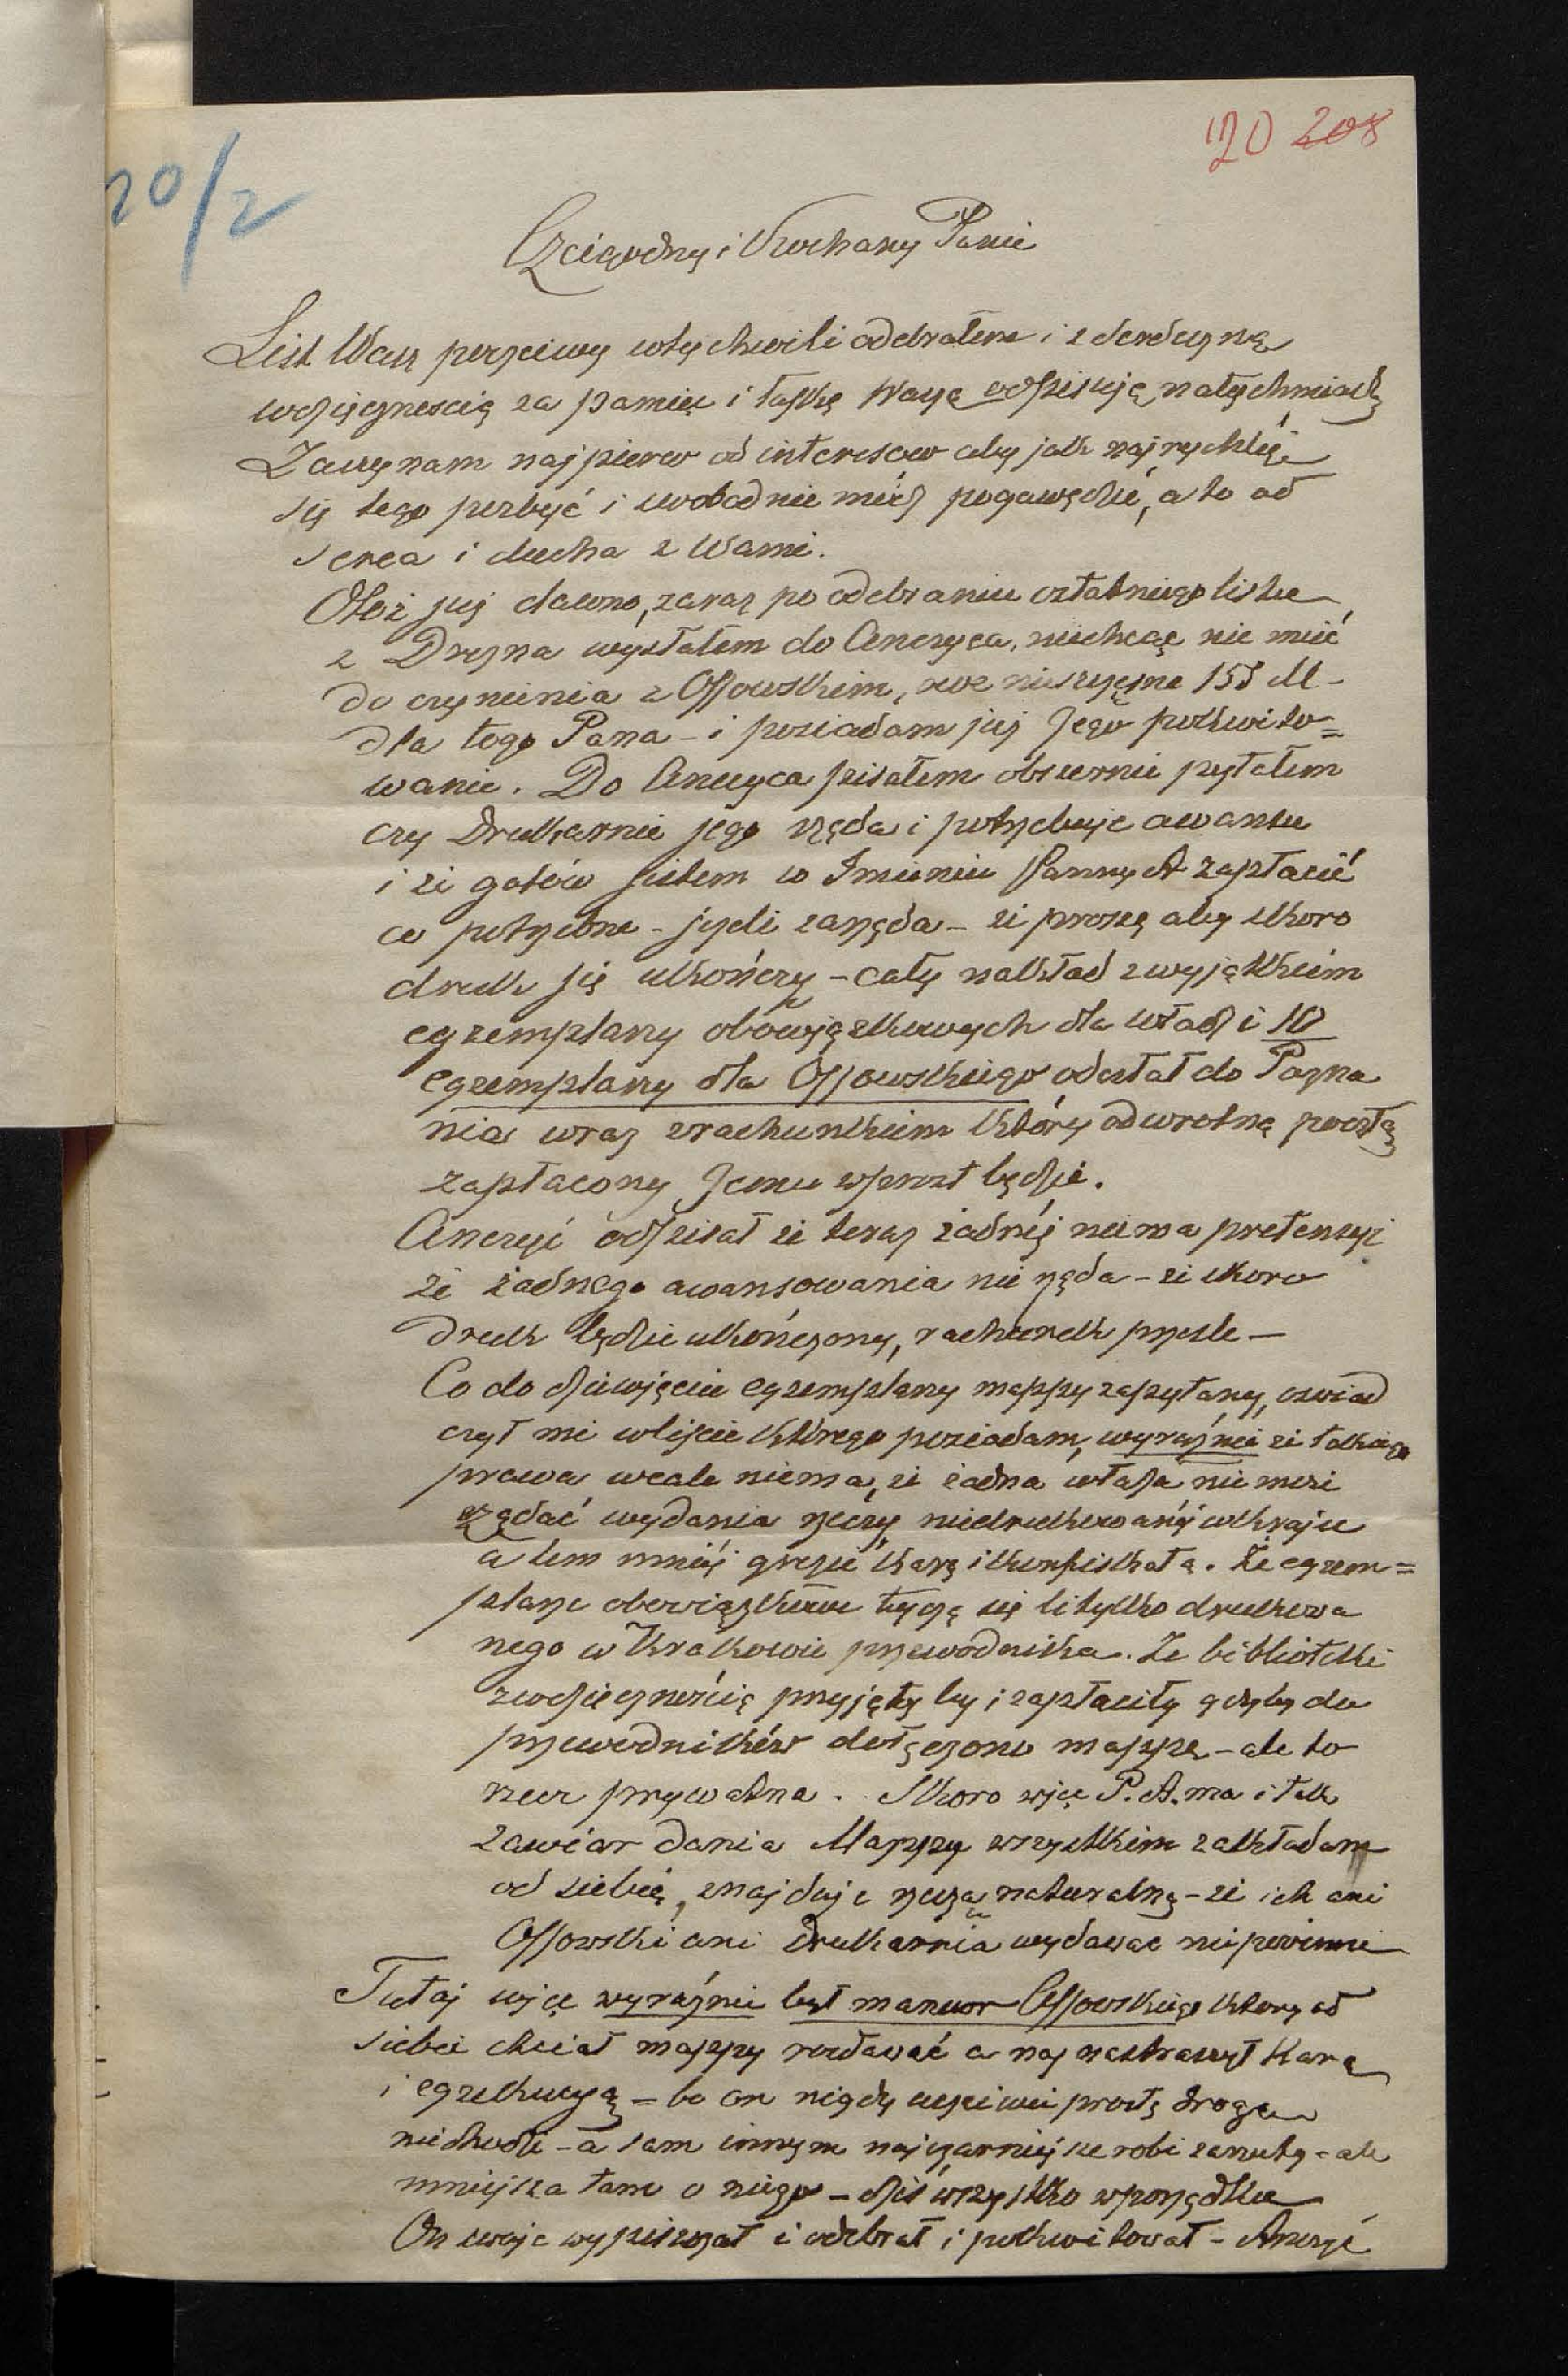 120 208
20/2
Czcigodny i Kochany Panie
List Wasz poczciwy w tej chwili odebrałem i z serdeczną
wdzięcznością za pamięć i łaskę Waszą odpisuję natychmiast
Zaczynam najpierw od interesów aby jak najrychlej
się tego pozbyć i swobodnie módz pogawędzić, a to od
serca i ducha z Wami.
Otóż już dawno, zaraz po odebraniu ostatniego listu
z Drezna wysłałem do Anczyca, niechcąc nic mieć
do czynienia z Ossowskim, owe nieszczęsne 155 M –
dla tego Pana – i posiadam już Jego pokwito=
wanie. Do Anczyca pisałem obszernie pytałem
czy Drukarnia jego żąda i potrzebuje awansu
i że gotów jestem w Imieniu Panny A zapłacić
co potrzebne – jeżeli zażąda – że proszę aby skoro
druk się ukończy – cały nakład z wyjątkiem
egzemplarzy obowiązkowych dla władz i 10
egzemplarzy dla Ossowskiego odesłał do Pozna
nia wraz z rachunkiem który odwrotną pocztą
zapłacony Jemu wprost będzie.
Anczyc odpisał że teraz żadnéj niema pretensyi
że żadnego awansowania nie żąda – że skoro
druk będzie ukończony, rachunek przeszle –
Co do dziewięciu egzemplarzy mappy zapytany, oświad
czył mi w liście którego posiadam, wyraźnie że takiego
prawa wcale niema, że żadna władza nie może
żądać wydania rzeczy niedrukowanéj w kraju
a tem mniéj grozić karą i konfiskatą. Że egzem=
plarze obowiązkowe tyczą się li tylko drukowa
nego w Krakowie przewodnika. Że biblioteki
z wdzięcznością przyjęły by i zapłaciły gdyby do
przewodników dołączono mappę – ale to
rzecz prywatna. Skoro więc P. A. ma i tak
zamiar dania Mappy wszystkim zakładom
od siebie, znajduje rzeczą naturalną – że ich ani
Ossowski ani drukarnia wydawać nie powinni
Tutaj więc wyraźnie był manewr Ossowskiego który od
siebie chciał mappy rozdawać a nas nastraszył karą
i egzekucyą – bo on nigdy uczciwie prostą drogą
nie chodzi – a sam innym najczarniejsze robi zarzuty – ale
mniejsza tam o niego – dziś wszystko w porządku
On swoje i odebrał i pokwitował – Anczyc